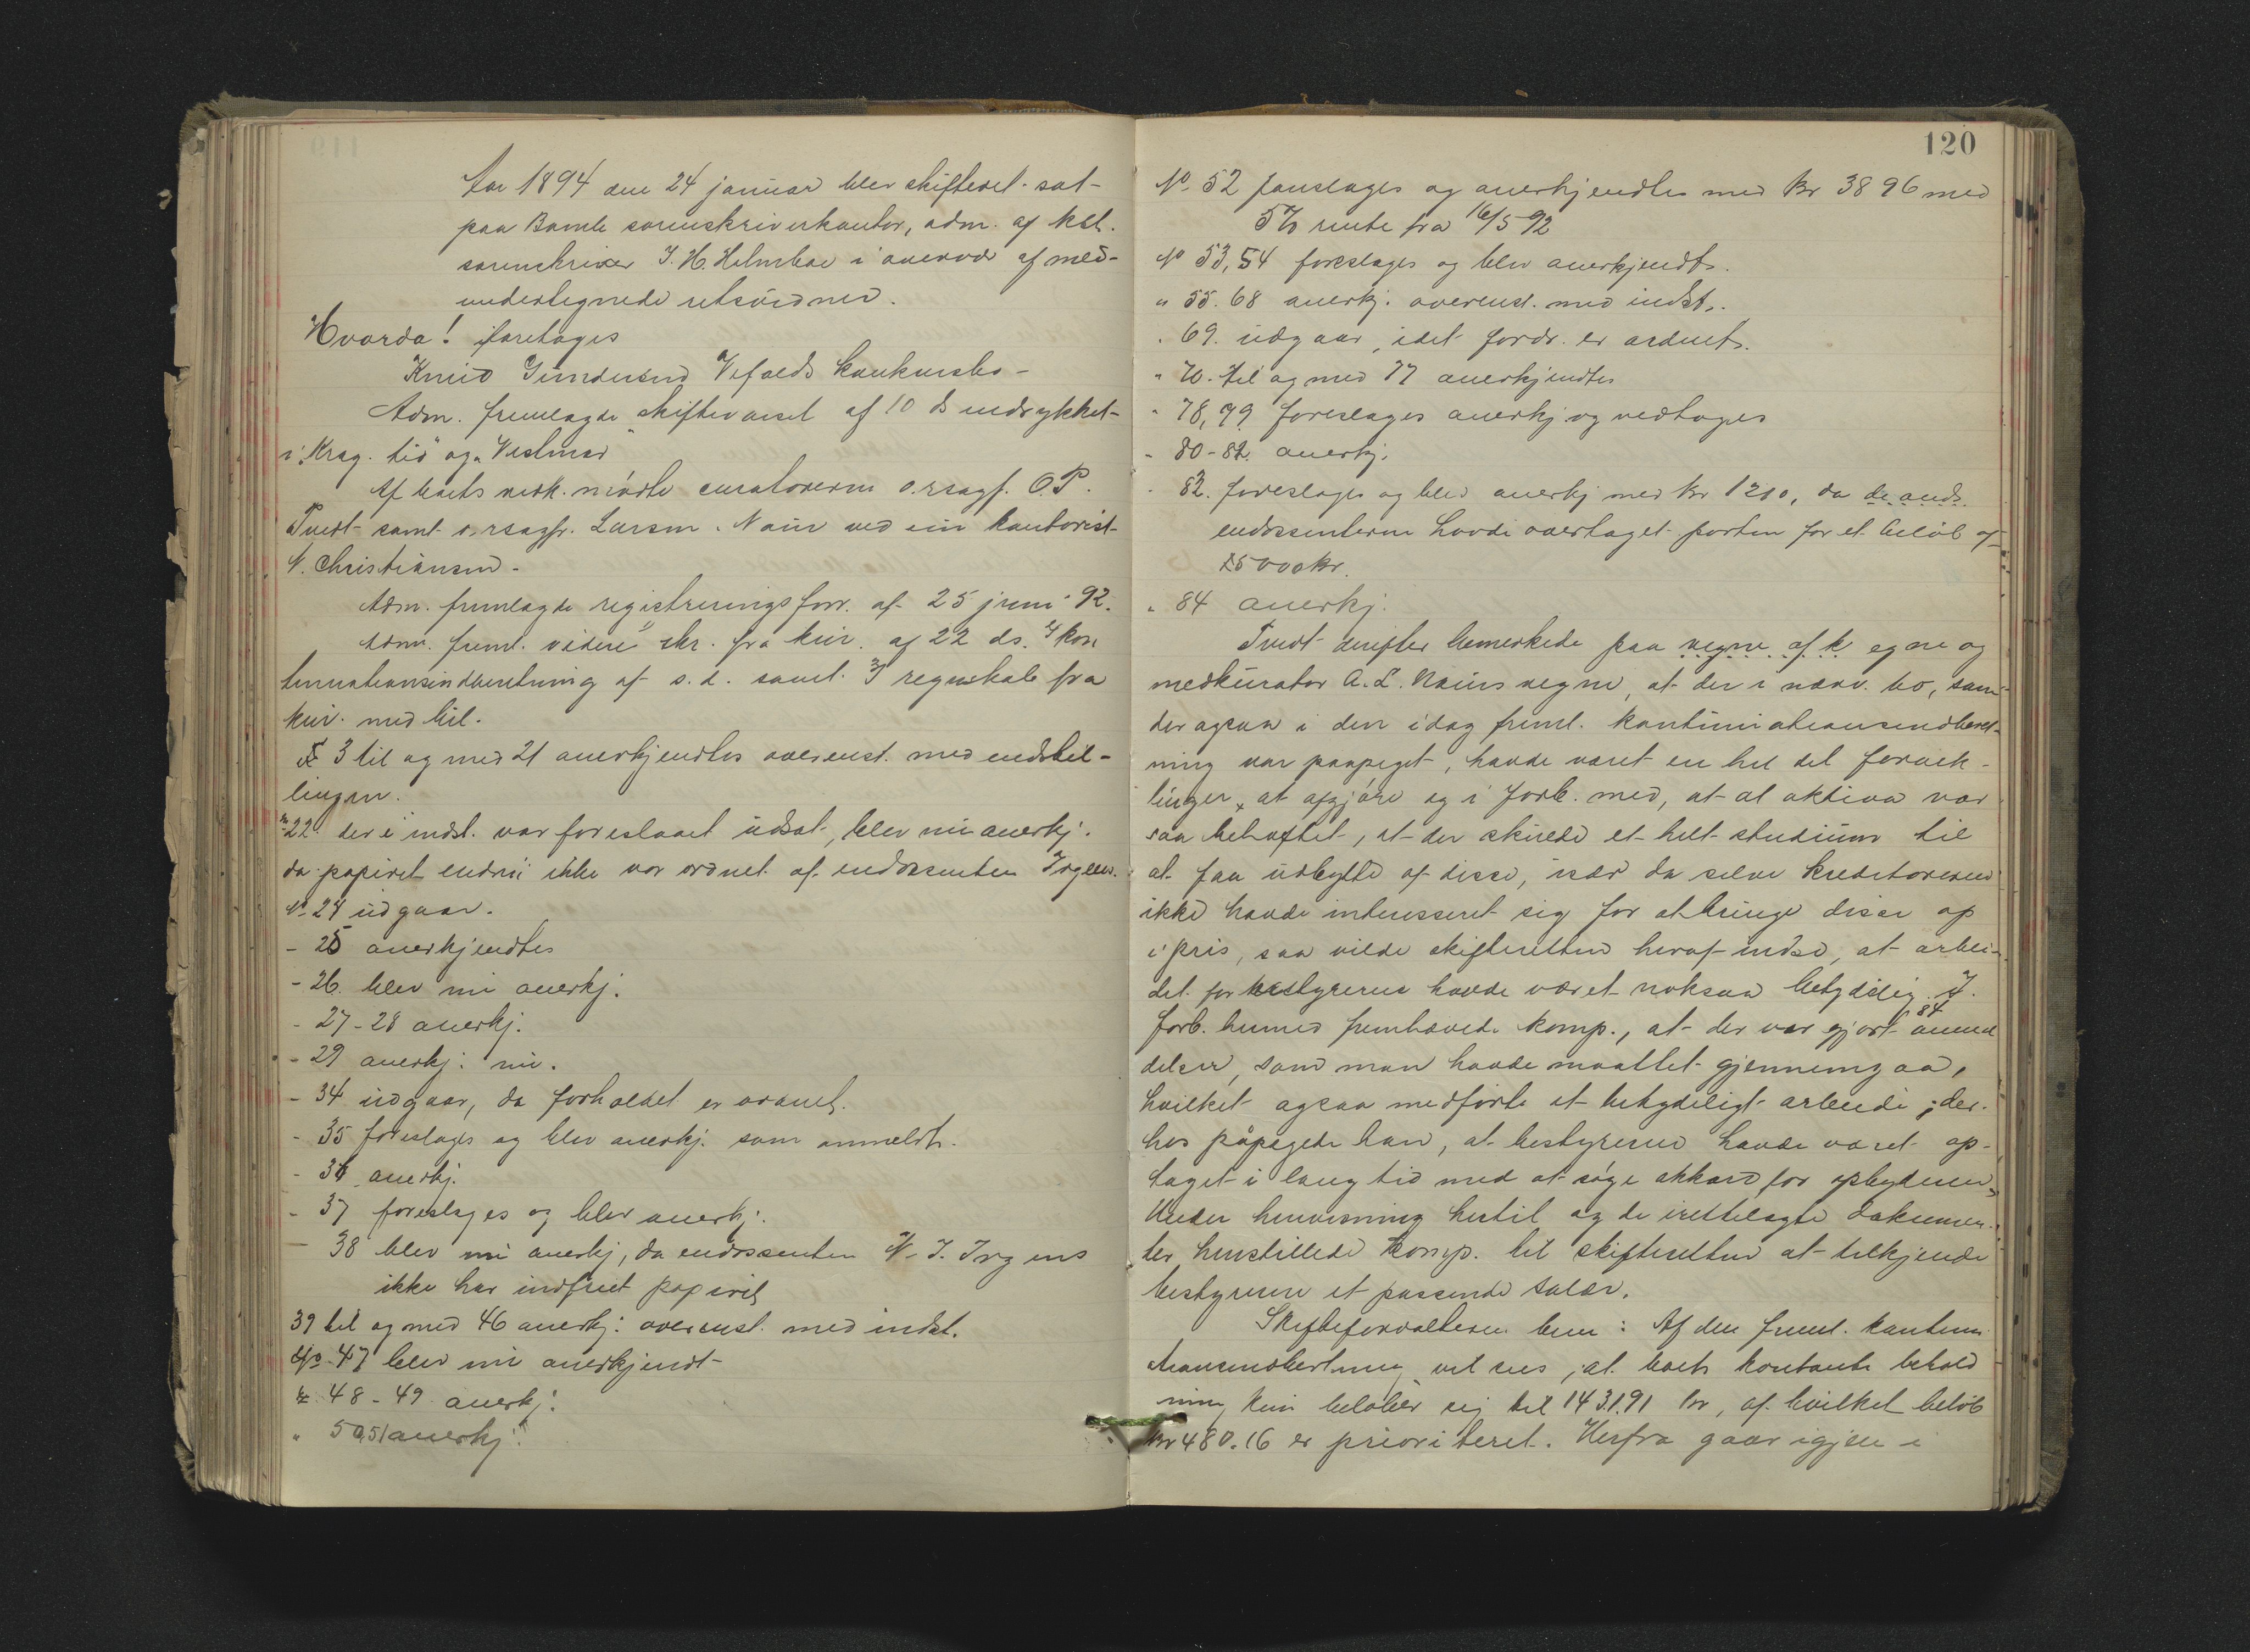 Aar 1894 den 24 januar blev skifteret sat
paa Bamle sorenskriverkontor, adm. af kst.
sorenskriver J. H. Helmboe i overvær af med-
undertegnede retsvidner.
Hvorda! foretoges
Knud Gundersens Vifalds konkursbo -
Adm. fremlagde skiftevarsel af 10 ds indrykket
i "Krag. tid" og "Vestmar"
Af boets vedk. mödte curatorerne o.rsagf. O. P.
Tvedt samt o.rsagfr. Larsen. Naur ved sin kontorist
N. Christiansen.
Adm. fremlagde registreringsforr. af 25 juni 92.
Adm. freml. videre skr. fra kur. af 22 ds. kon
tinuationsindberetning af s. d. samt regnskab fra
kur. med bil.
3 til og med 21 anerkjendtes overenst. med indstil-
lingen.
22. der i indst. var foreslaaet udsat, blev nu anerkj.
da papiret endnu ikke var ordnet af endossenten Irgens.
No 24 udgaar.
- 25 anerkjendtes
- 26 blev nu anerkj.
- 27-28 anerkj.
- 29 anerkj: nu.
- 34 udgaar, da forholdet er ordnet.
- 35 foreslages og blev anerkj. som anmeldt.
- 36 anerkj.
- 37 foreslages og blev anerkj.
- 38 blev nu anerkj, da endossenten N. J. Irgens
ikke har indfriet papiret
39 til og med 46 anerkj: overenst. med indst.
No 47 blev nu anerkjendt
48 - 49 anerkj.
" 50,51 anerkj.
120
No 52 foreslages og anerkjendtes med Kr 3896 med
5% rente fra 16/5 92
No 53, 54 foreslages og blev anerkjendt.
" 55. 68 anerkj. overenst. med indst.
" 69. udgaar, idet fordr. er ordnet.
" 70. til og med 77 anerkjendtes
" 78, 79 foreslages anerkj og vedtoges
" 80-82 anerkj.
" 82. foreslages og blev anerkj med Kr 1210, da de andre
endossenterne havde overtaget porten for et belöb af
25000 kr.
" 84 anerkj.
Tvedt derefter bemerkede paa vegne af k egne og
medkurator A. L. Naurs vegne, at der i nærv. bo, som
der ogsaa i den idag freml. kontinuationsindberet-
ning var paapeget, havde været en hel del forvik-
linger at afgjöre og i forb. med, at al aktiva var
saa behæftet, at der skulde et helt studium til
at faa udbytte af disse, især da selve kreditorerne
ikke havde interesseret sig for at bringe disse op
i pris, saa vilde skifteretten heraf indse, at arbei-
det for bestyrerne havde været noksaa betydelig. I
forb. hermed fremhævede komp., at der var gjort 84 anmel
delser, som man havde maattet gjennemgaa,
hvilket ogsaa medförte et betydeligt arbeide; der-
hos påpegede han, at bestyrerne havde været op-
taget i lang tid med at söge akkord for opbyderen,
Under henvisning hertil og de irettelagte dokumen-
ter henstillede komp. til skifteretten at tilkjende
bestyreren et passende salær.
Skifteforvalteren bem: Af den freml. kontinu
ationsindbertning vil sees, at boets kontante behold
ning kun belöber sig til 1431.91 kr, af hvilket belöb
kr 480.16 er prioriteret. Herfra gaar igjen i